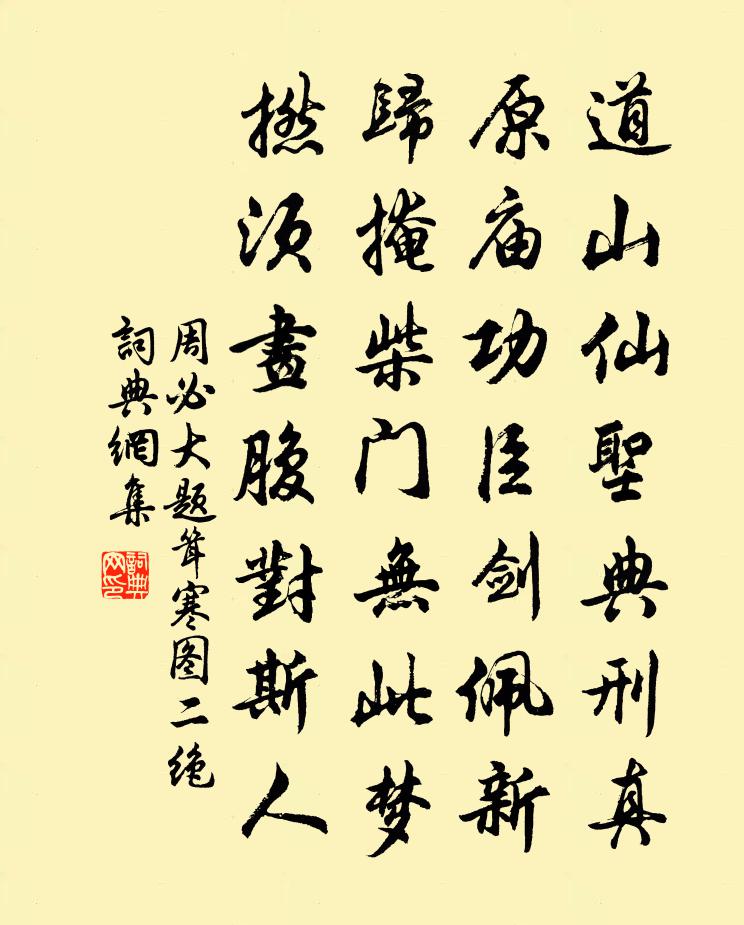 道山仙聖典刑真
原庙功臣剑佩新
歸掩柴门無此梦
撚须畫腹對斯人
周必大题耸寒图二绝
詞典網集
詞典
网印